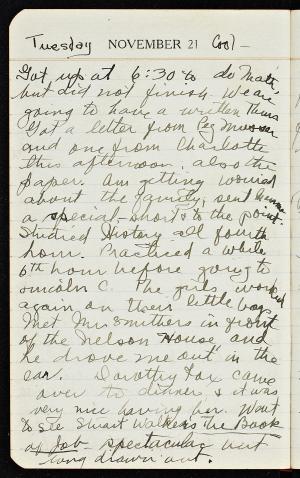 Tuesday NOVEMBER 21 Cool -
Got up at 6:30 to do Math,
but did not finish. We are
going to have a written Thurs
Got a letter from Peg
and one from Charlotte
this afternoon, also the
paper. Am getting worried
about the family, sent
a special - short & to the point.
Studied History all fourth
hour. Practiced a while
6th hour before going to
C. The girls worked
again on their little bags.
Met Mr. Smithers in front
of the Nelson House and
he drove me out in the
car. Dorothy Fox came
over to dinner & it was
very nice having her. Went
to see Stuart Walker's The Book
of Job - spectacular but
long drawn out.